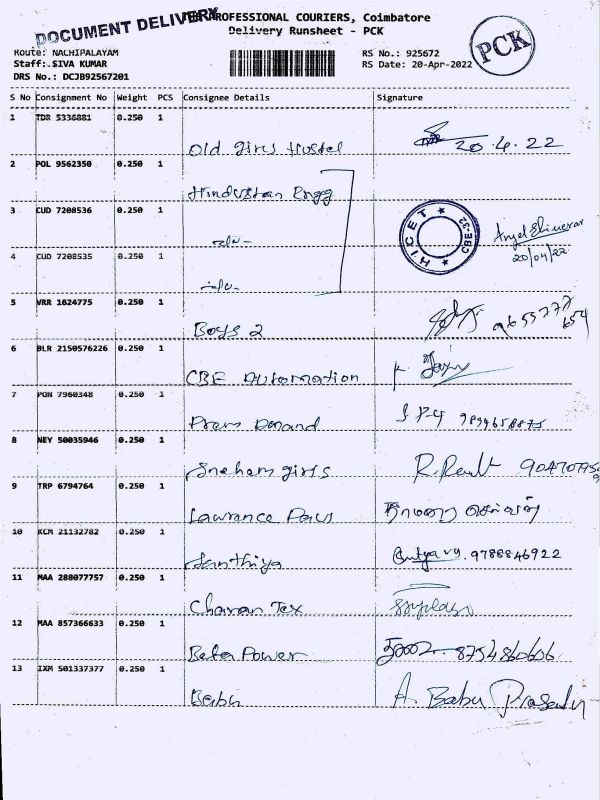 DOCUMENT DELIVERY
THE PROFESSIONAL COURIERS, Coimbatore
Delivery Runsheet - PCK
PCK
Route: NACHIPALAYAM
Staff: SIVA KUMAR
DRS No.: DCJB92567201
RS No.: 925672
RS Date: 20-Apr-2022
S No Consignment No Weight PCS Consignee Details Signature
1 TDR 5336881 0.250 1
Old girls Hostel 20.4.22
2 POL 9562350 0.250 1
Hindustan Engg
3 CUD 7208536 0.250 1
HICET CBE-32
20/04/22
4 CUD 7208535 0.250 1
5 VRR 1624775 0.250 1
Boys 2
6 BLR 2150576226 0.250 1
CBE Automation
7 PON 7960348 0.250 1
8 NEY 50035946 0.250 1
Sneham girls
9 TRP 6794764 0.250 1
Lawrance
10 KCM 21132782 0.250 1
Santhiya 9788846922
11 MAA 288077757 0.250 1
Charan Tex
12 MAA 857366633 0.250 1
Beta Power 8754860606
13 IXM 501337377 0.250 1
Babu A. Babu Prasad